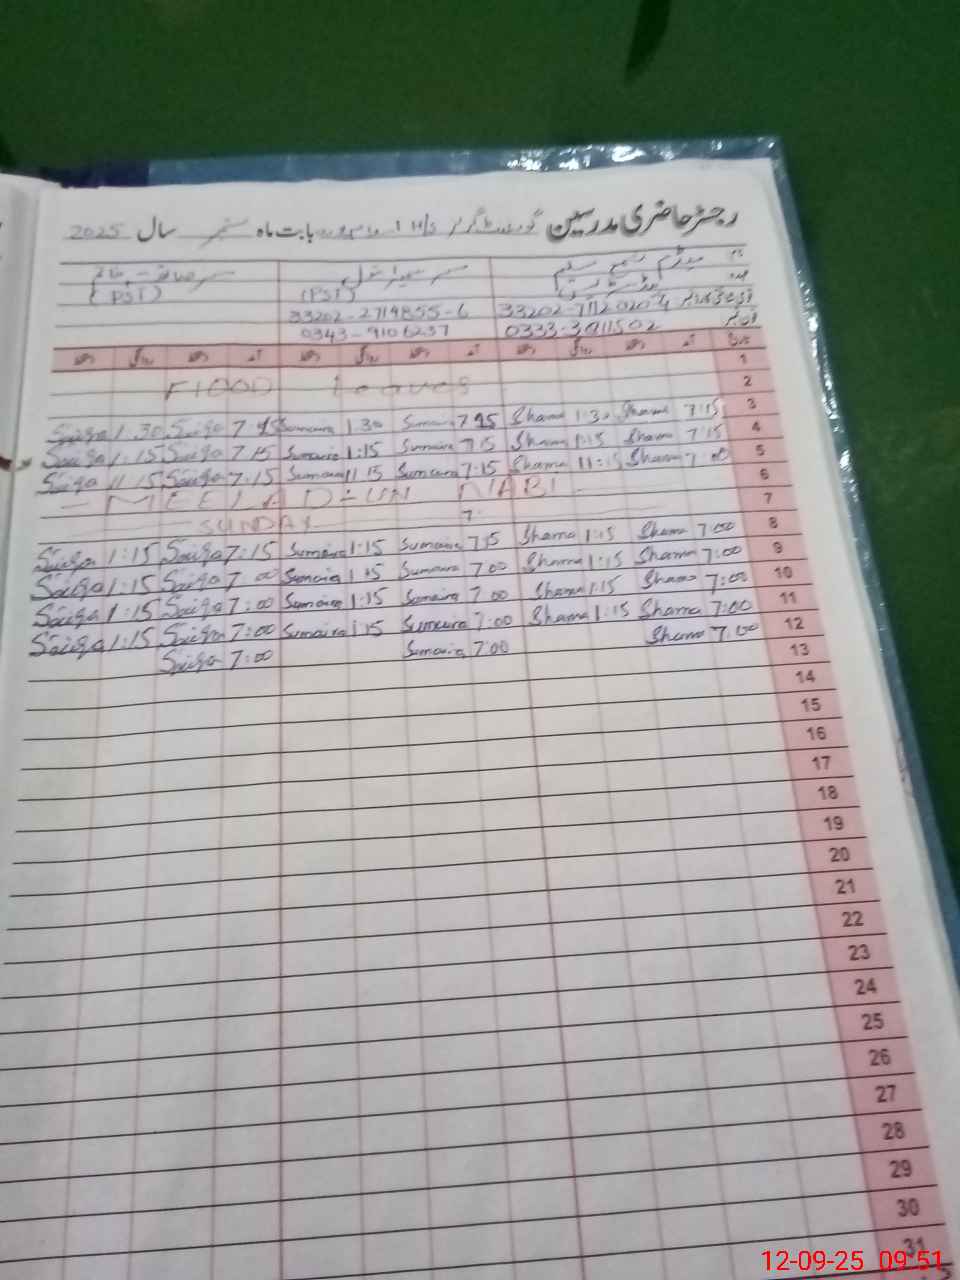 رجسٹر حاضری مدرسین گورنمنٹ گرلز H/S بابت ماہ ستمبر سال 2025
نام میڈم
عہدہ (PST) (PST)
33202-2719855-6
0333-3911502 0343-9106237
تاریخ آمد دستخط روانگی دستخط آمد دستخط روانگی دستخط آمد دستخط روانگی دستخط
1
FlOOD leaves 2
Saiqa 1:30 Saiqa Sumaira 1:30 Sumaira Shama 1:30 Shama 7:15 3
Saiqa 1:15 Saiqa 7:15 Sumaira 1:15 Sumaira 7:15 Shama 1:15 Shama 7:15 4
Saiqa 11:15 Saiqa 7:15 Sumaira 11:15 Sumaira 7:15 Shama 11:15 Shama 7:00 5
- MEELAD-UN NABI 6
SUNDAY 7
Saiqa 1:15 Saiqa 7:15 Sumaira 1:15 Sumaira 7:15 Shama 1:15 Shama 7:00 8
Saiqa 1:15 Saiqa 7:00 Sumaira 1:15 Sumaira 7:00 Shama 1:15 Shama 7:00 9
Saiqa 1:15 Saiqa 7:00 Sumaira 1:15 Sumaira 7:00 Shama 1:15 Shama 7:00 10
Saiqa 1:15 Saiqa 7:00 Sumaira 1:15 Sumaira 7:00 Shama 1:15 Shama 7:00 11
Saiqa 7:00 Sumaira 7:00 Shama 7:00 12
13
14
15
16
17
18
19
20
21
22
23
24
25
26
27
28
29
30
31
12-09-25 09:51